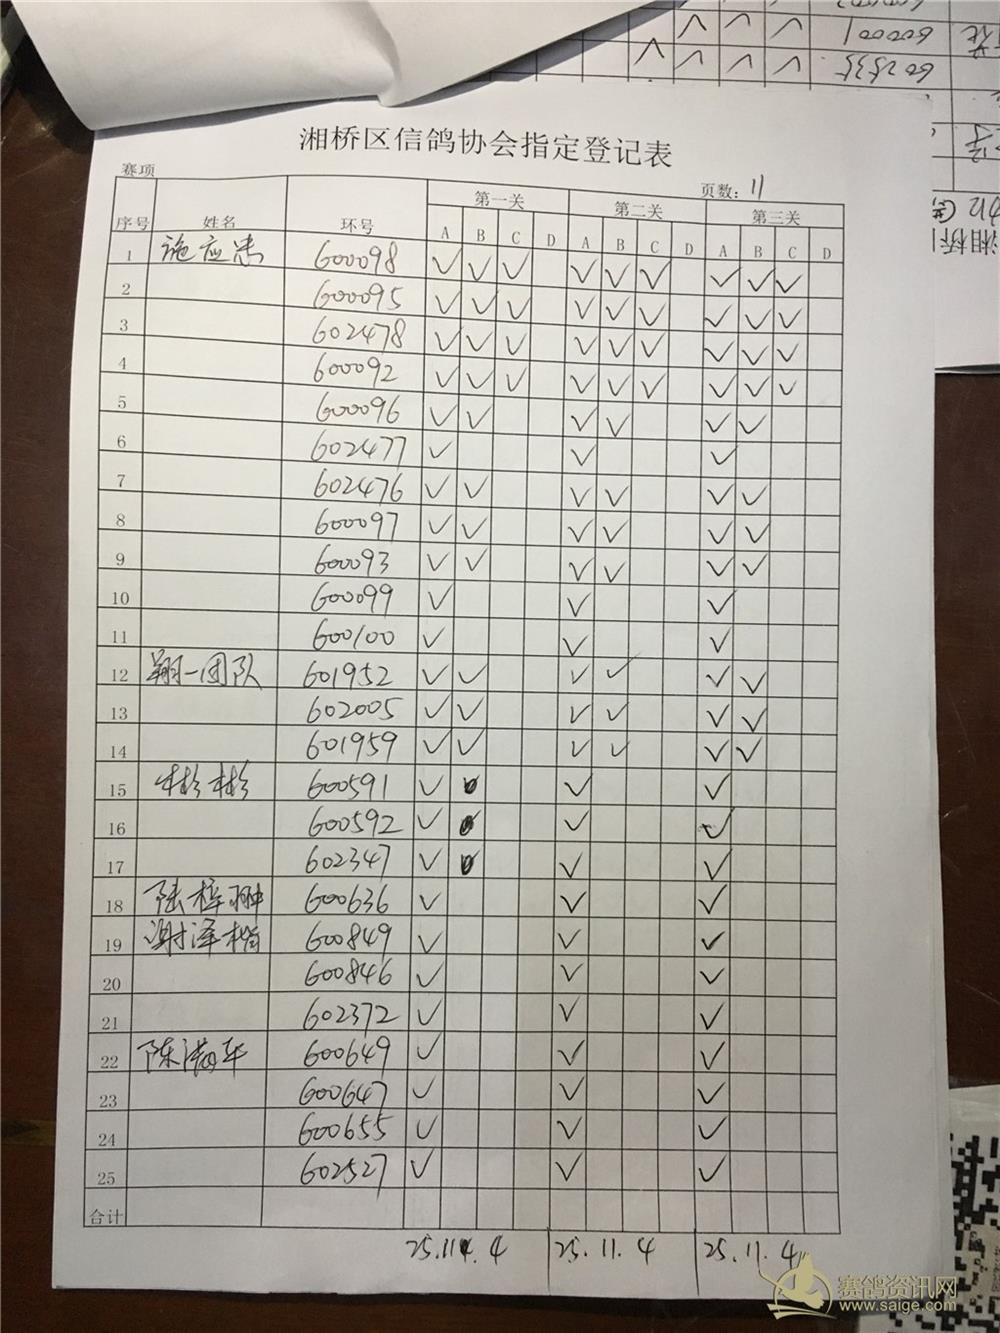 600001
602535
湘桥区信鸽协会指定登记表
赛项 页数: 11
序号 姓名 环号 第一关 第二关 第三关
A B C D A B C D A B C D
1 施应忠 600098 ✓ ✓ ✓ ✓ ✓ ✓ ✓ ✓ ✓
2 600095 ✓ ✓ ✓ ✓ ✓ ✓ ✓ ✓ ✓
3 602478 ✓ ✓ ✓ ✓ ✓ ✓ ✓ ✓ ✓
4 600092 ✓ ✓ ✓ ✓ ✓ ✓ ✓ ✓ ✓
5 600096 ✓ ✓ ✓ ✓ ✓ ✓
6 602477 ✓ ✓ ✓
7 602476 ✓ ✓ ✓ ✓ ✓ ✓
8 600097 ✓ ✓ ✓ ✓ ✓ ✓
9 600093 ✓ ✓ ✓ ✓ ✓ ✓
10 600099 ✓ ✓ ✓
11 600100 ✓ ✓ ✓
12 翔一团队 601952 ✓ ✓ ✓ ✓ ✓ ✓
13 602005 ✓ ✓ ✓ ✓ ✓ ✓
14 601959 ✓ ✓ ✓ ✓ ✓ ✓
15 彬彬 600591 ✓ ✓ ✓
16 600592 ✓ ✓ ✓
17 602347 ✓ ✓ ✓
18 陆梓翀 600636 ✓ ✓ ✓
19 谢泽楷 600849 ✓ ✓ ✓
20 600846 ✓ ✓ ✓
21 602372 ✓ ✓ ✓
22 600649 ✓ ✓ ✓
23 600647 ✓ ✓ ✓
24 600655 ✓ ✓ ✓
25 602527 ✓ ✓ ✓
合计
25.11.4 25.11.4 25.11.4
赛鸽资讯网
www.saige.com